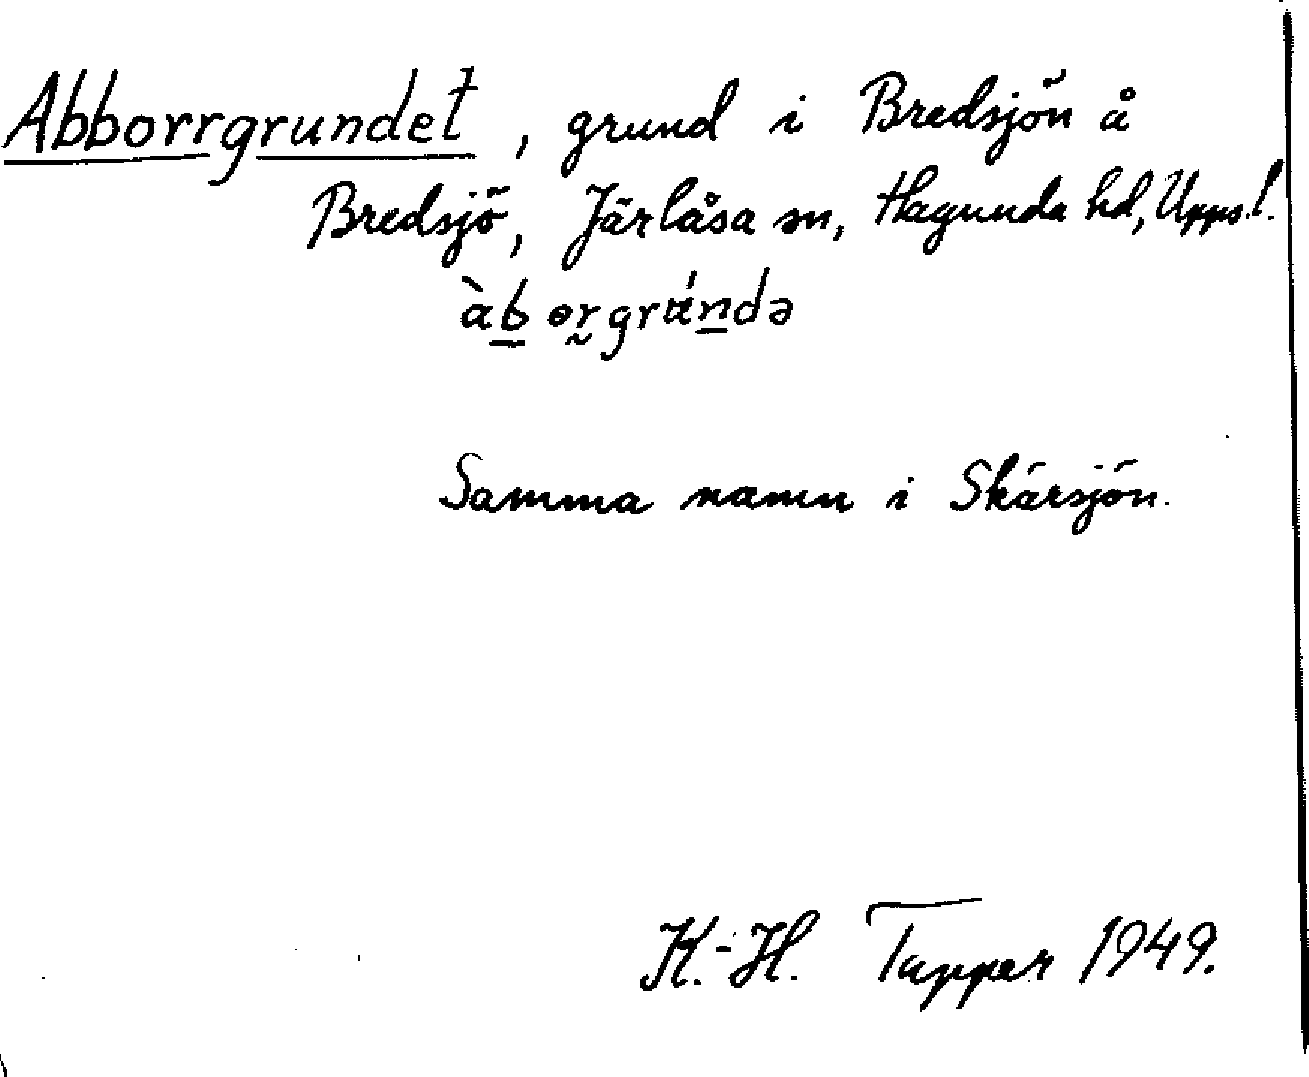 Abborrgrundet, grund i Bredsjön å
Bredsjö, Järlåsa sn, Hagunda hd, Uppl.
àb̲ ɵr̰grʉ́n̲də
Samma namn i Skärsjön.
K.-H. Tapper 1949.